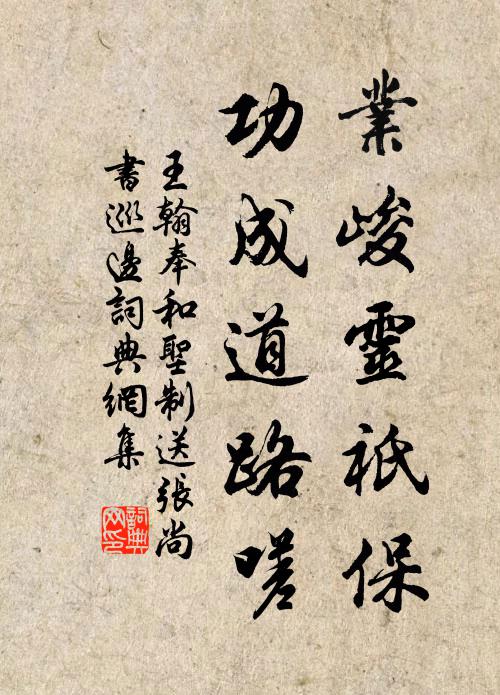 業峻靈祇保
功成道路嗟
王翰奉和聖制送張尚
書巡邊詞典網集
詞典
网印